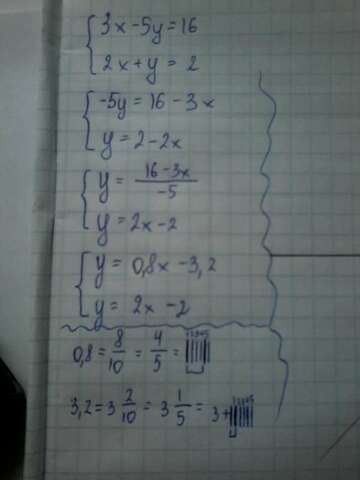 3x - 5y = 16
2x + y = 2
-5y = 16 - 3x
y = 2 - 2x
y = \frac{16 - 3x}{-5}
y = 2x - 2
y = 0,8x - 3,2
y = 2x - 2
0,8 = \frac{8}{10} = \frac{4}{5} =
3,2 = 3 \frac{2}{10} = 3 \frac{1}{5} = 3 +